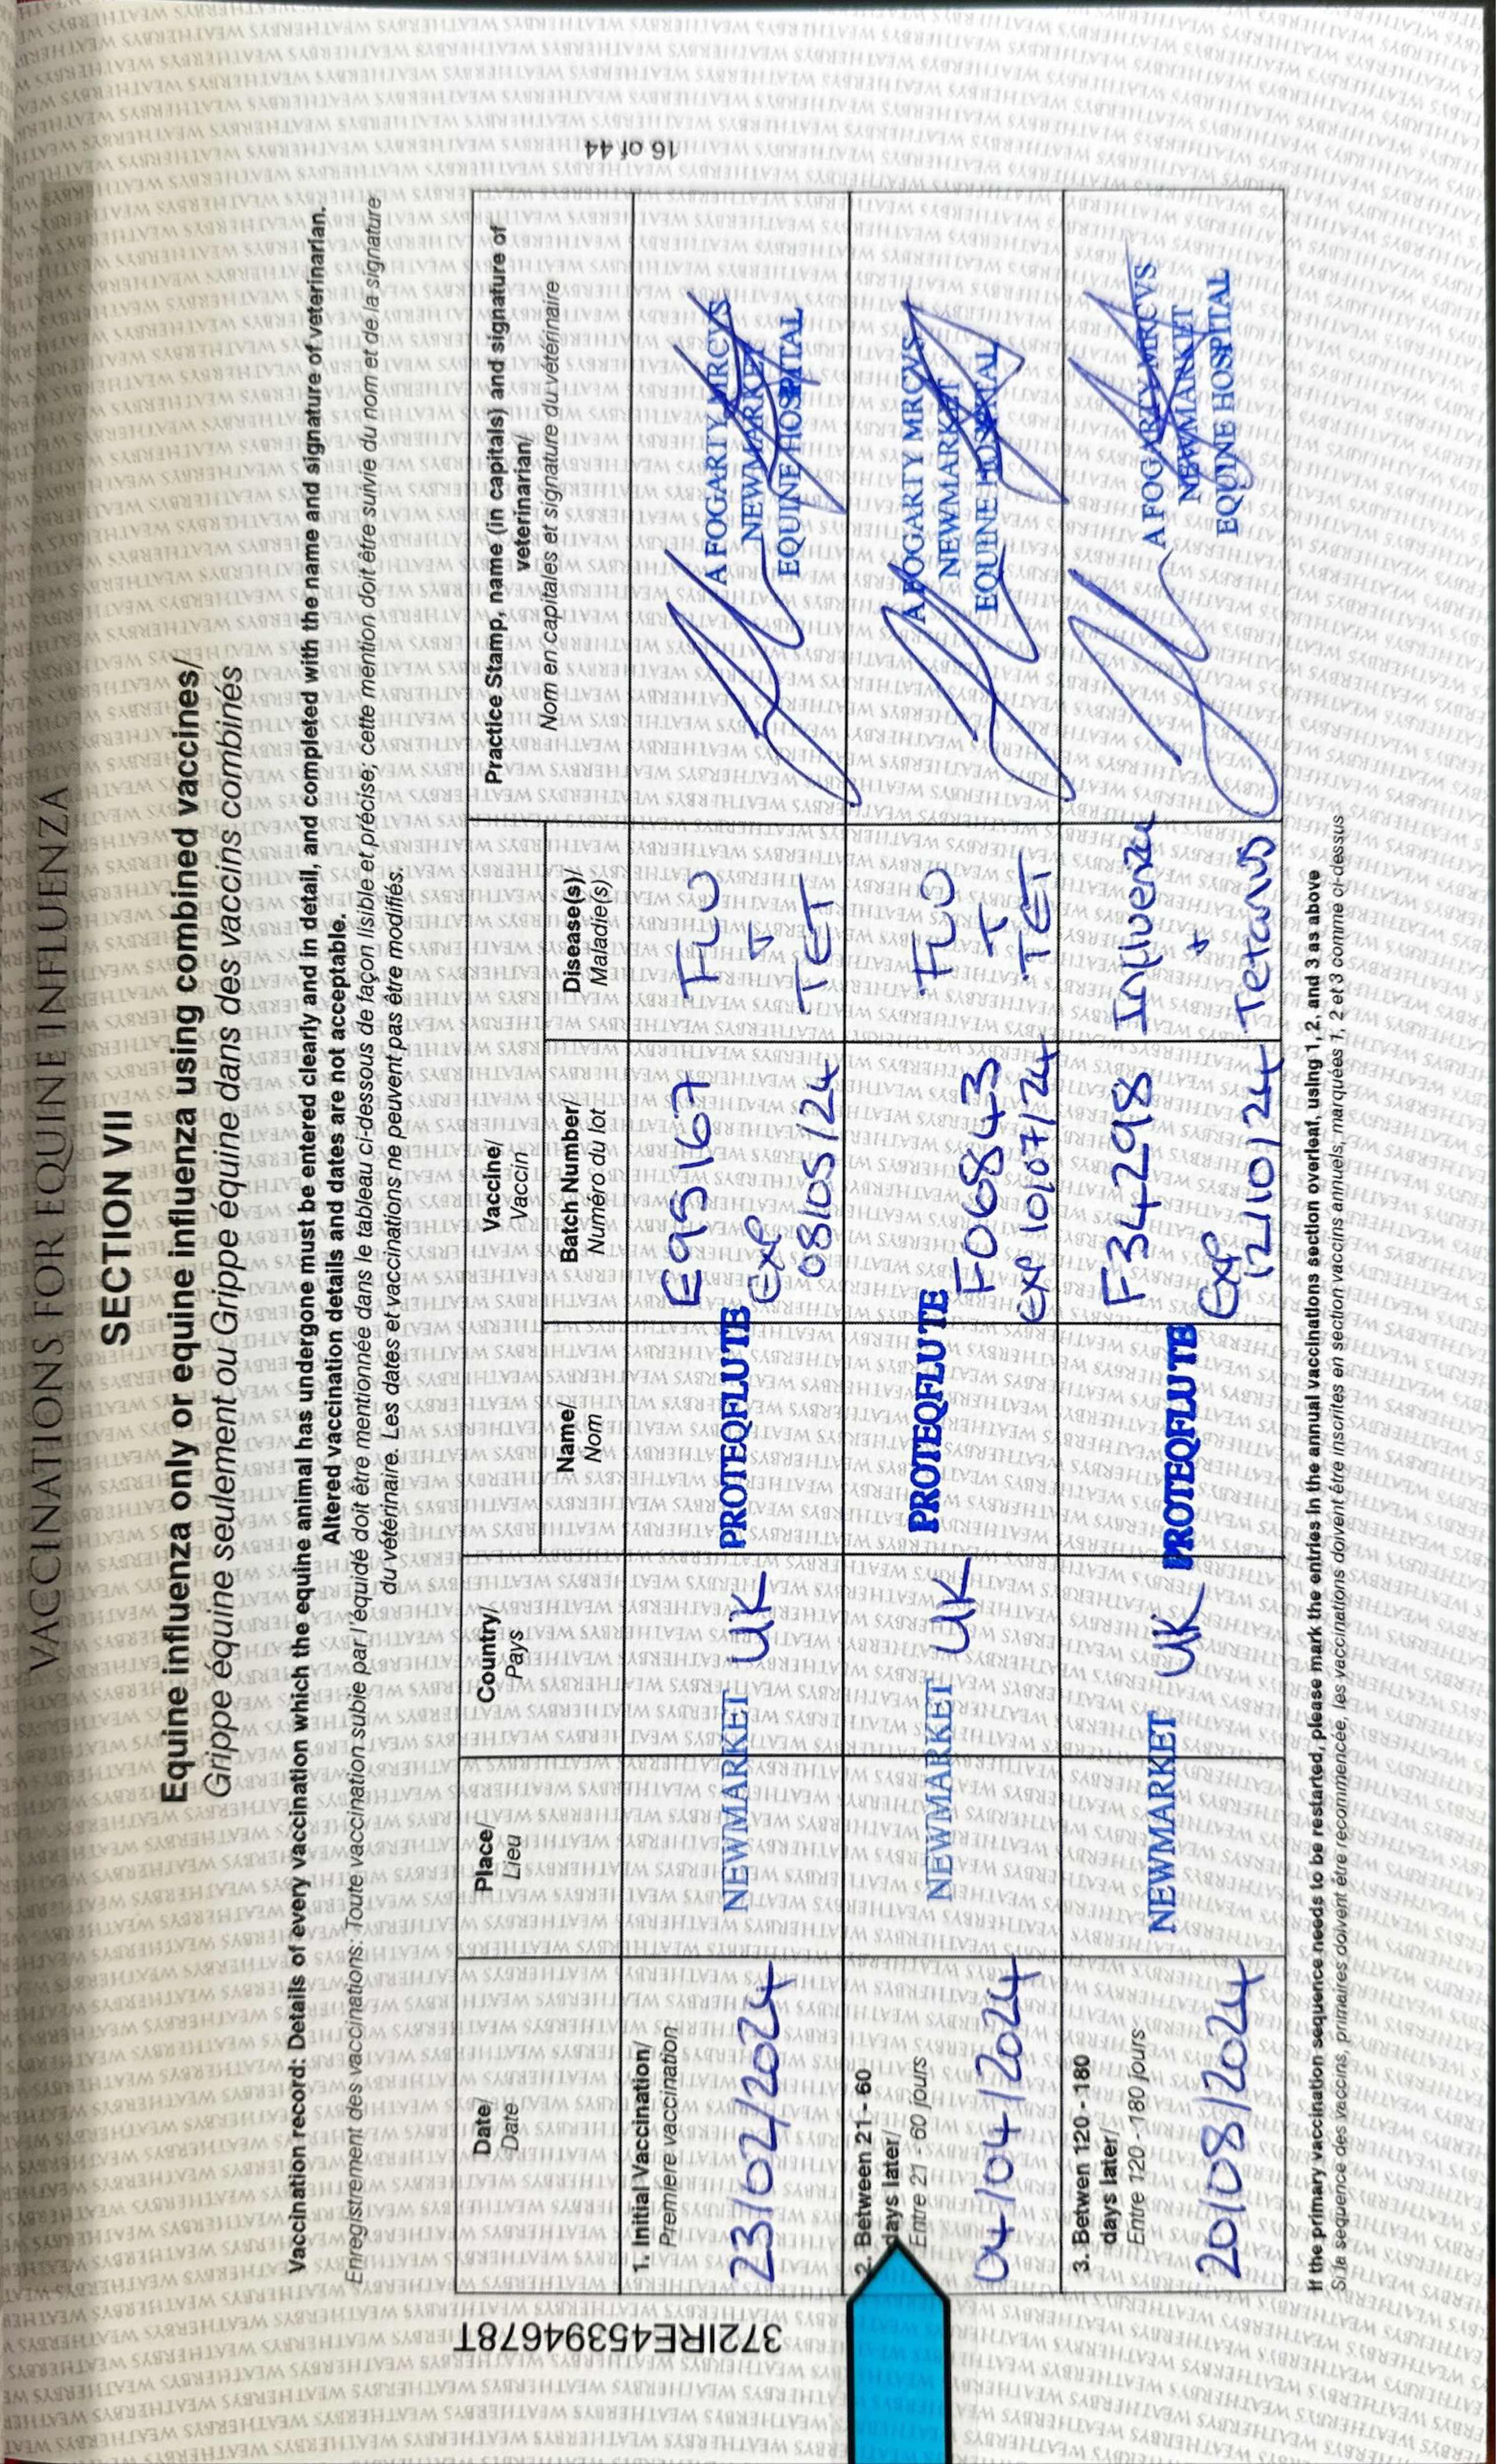 VACCINATIONS FOR EQUINE INFLUENZA
SECTION VII
Equine influenza only or equine influenza using combined vaccines/
Grippe équine seulement ou Grippe équine dans des vaccins combinés
Vaccination record: Details of every vaccination which the equine animal has undergone must be entered clearly and in detail, and completed with the name and signature of veterinarian.
Altered vaccination details and dates are not acceptable.
Enregistrement des vaccinations: Toute vaccination subie par l'équidé doit être mentionnée dans le tableau ci-dessous de façon lisible et précise; cette mention doit être suivie du nom et de la signature
du vétérinaire. Les dates et vaccinations ne peuvent pas être modifiés.
Date/
Date
Place/
Lieu
Country/
Pays
Vaccine/
Vaccin
Name/
Nom
Batch Number/
Numéro du lot
Disease(s)/
Maladie(s)
Practice Stamp, name (in capitals) and signature of
veterinarian/
Nom en capitales et signature du vétérinaire
1. Initial Vaccination/
Première vaccination
23/02/2024
NEWMARKET
UK
PROTEQFLU TE
E95167
Exp
08/05/24
FLU
+
TET
A FOGARTY MRCVS
NEWMARKET
EQUINE HOSPITAL
2. Between 21 - 60
days later/
Entre 21 - 60 jours
04/04/2024
NEWMARKET
UK
PROTEQFLU TE
F06843
exp 10/07/24
FLU
+
TET
A FOGARTY MRCVS
NEWMARKET
EQUINE HOSPITAL
3. Betwen 120 - 180
days later/
Entre 120 - 180 jours
20/08/2024
NEWMARKET
UK
PROTEQFLU TE
F34298
Exp
12/10/24
Influenza
+
Tetanus
A FOGARTY MRCVS
NEWMARKET
EQUINE HOSPITAL
If the primary vaccination sequence needs to be restarted, please mark the entries in the annual vaccinations section overleaf, using 1, 2, and 3 as above
Si la sequence des vaccins, primaires doivent être recommencée, les vaccinations doivent être inscrites en section vaccins annuels, marquées 1, 2 et 3 comme ci-dessus
372IRE45394678T
16 of 44